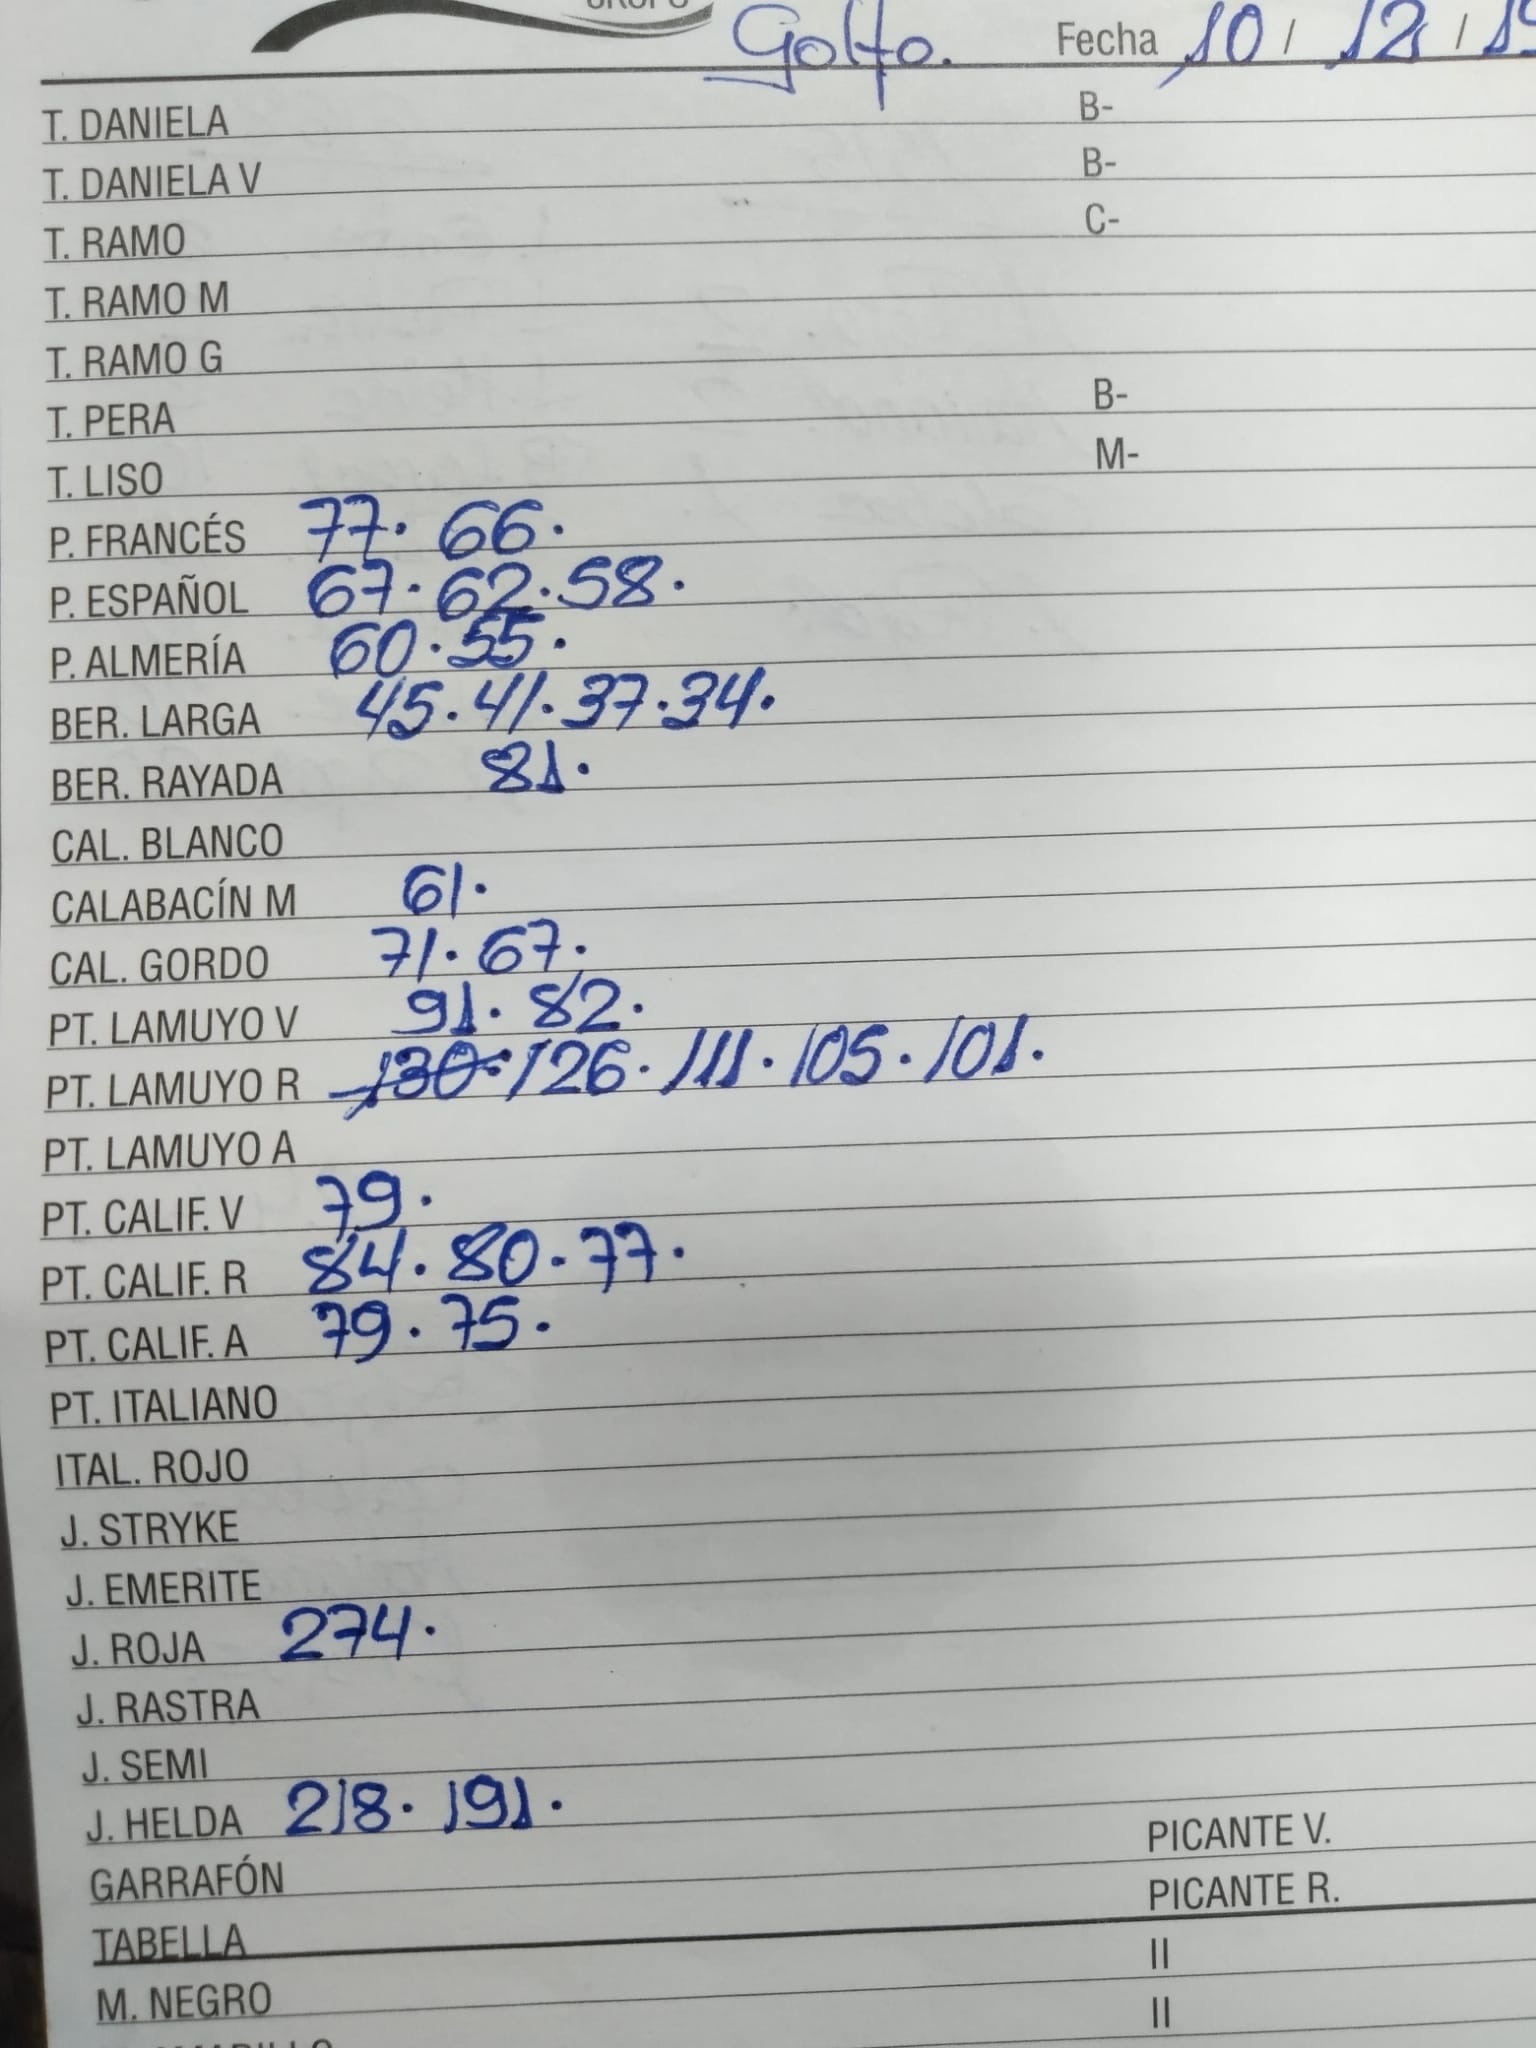 GRUPO
Golfo. Fecha 10 / 12 /
T. DANIELA B-
T. DANIELA V B-
T. RAMO C-
T. RAMO M
T. RAMO G
T. PERA B-
T. LISO M-
P. FRANCÉS 77. 66.
P. ESPAÑOL 67. 62. 58.
P. ALMERÍA 60. 55.
BER. LARGA 45. 41. 37. 34.
BER. RAYADA 81.
CAL. BLANCO
CALABACÍN M 61.
CAL. GORDO 71. 67.
PT. LAMUYO V 91. 82.
PT. LAMUYO R 130. 126. 111. 105. 101.
PT. LAMUYO A
PT. CALIF. V 79.
PT. CALIF. R 84. 80. 77.
PT. CALIF. A 79. 75.
PT. ITALIANO
ITAL. ROJO
J. STRYKE
J. EMERITE
J. ROJA 274.
J. RASTRA
J. SEMI
J. HELDA 218. 191.
PICANTE V.
GARRAFÓN
PICANTE R.
TABELLA
II
M. NEGRO
II